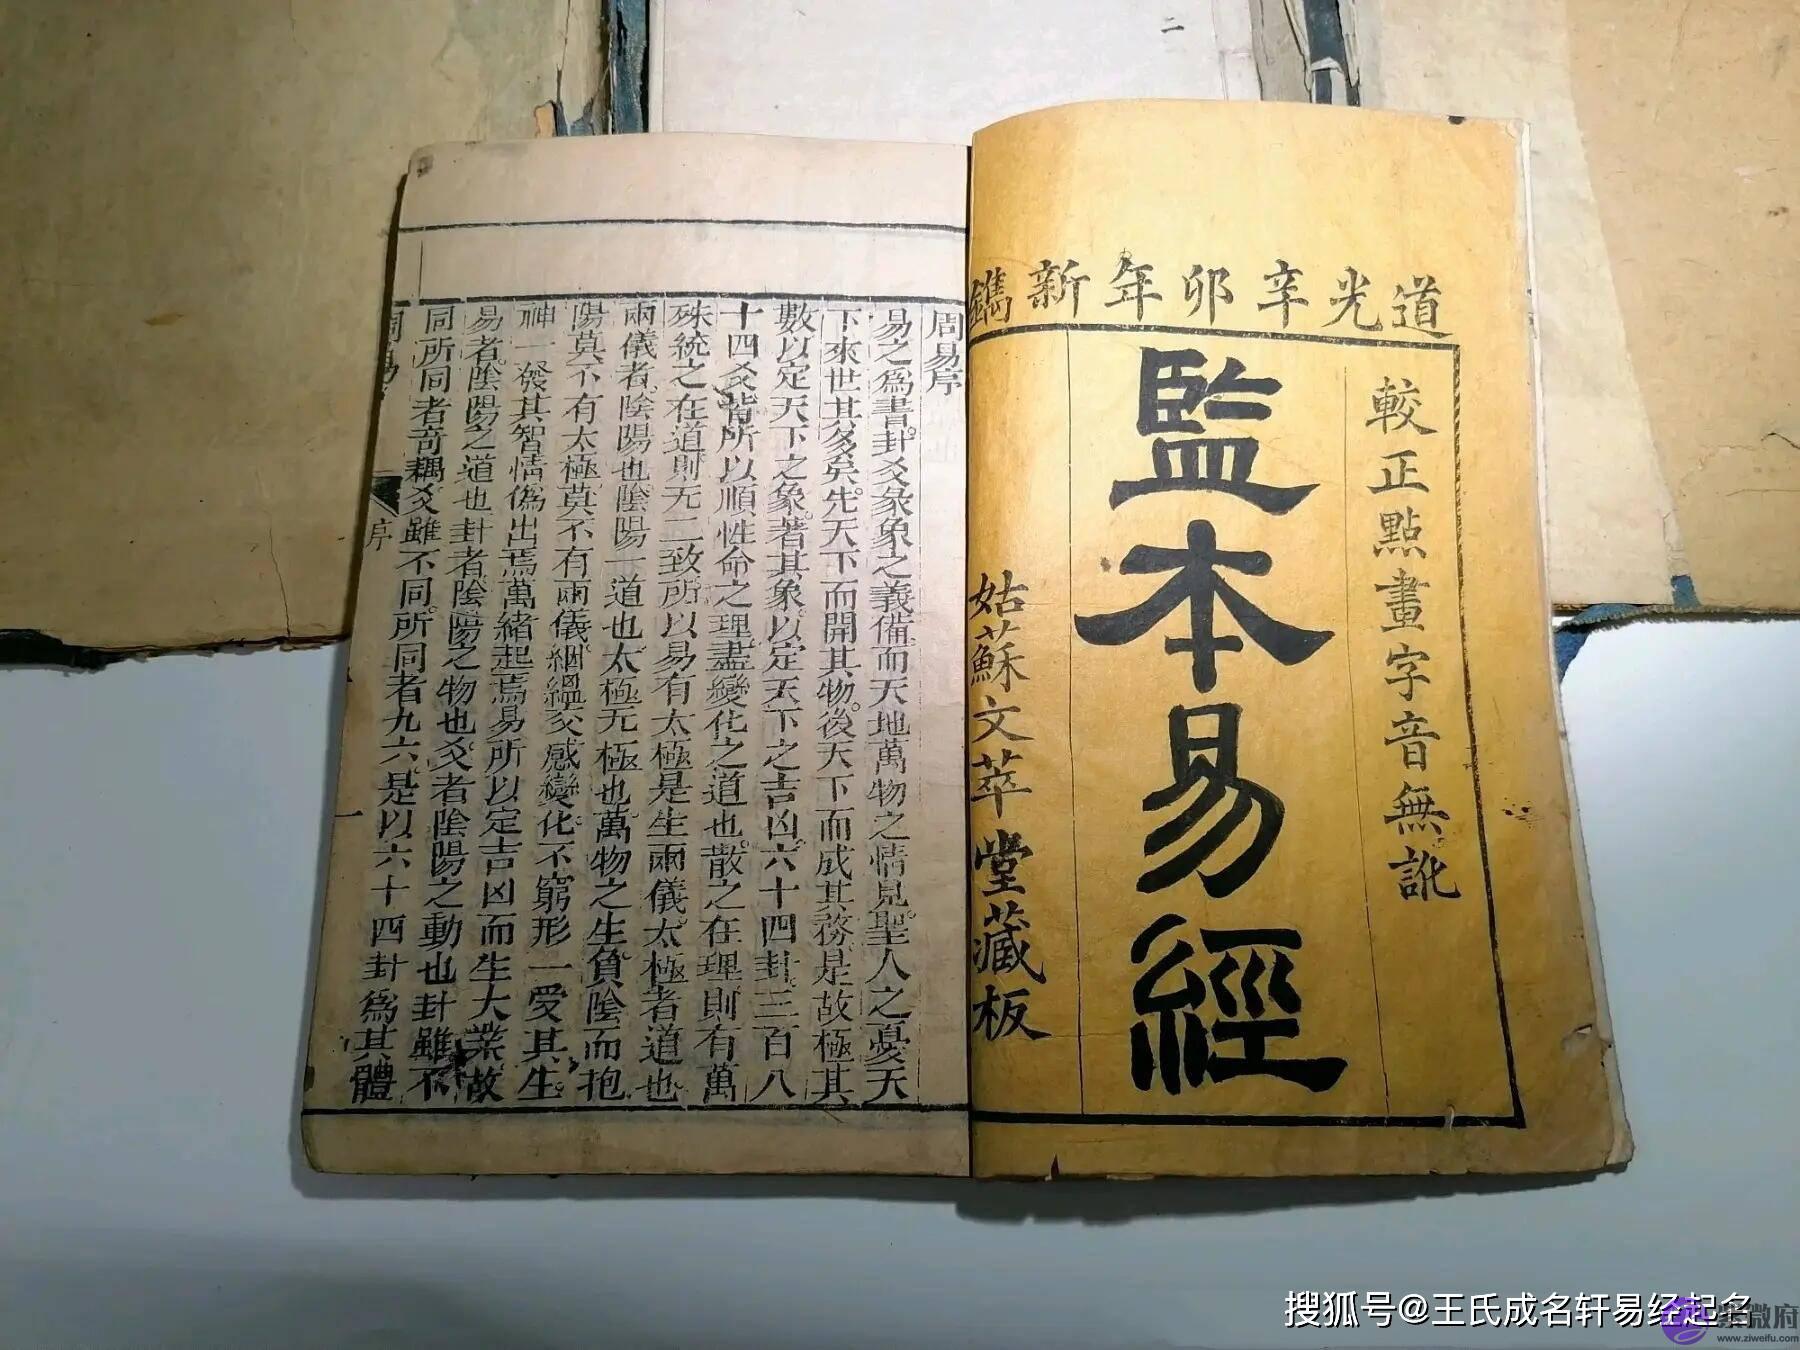 道光辛卯年新鐫
較正點畫字音無訛
監本易經
姑蘇文萃堂藏板
周易序
易之為書卦爻彖象之義備而天地萬物之情見聖人之憂天
下來世其多矣先天下而開其物後天下而成其務是故極其
數以定天下之象著其象以定天下之吉凶六十四卦三百八
十四爻皆所以順性命之理盡變化之道也散之在理則有萬
殊統之在道則无二致所以易有太極是生兩儀太極者道也
兩儀者陰陽也陰陽一道也太極无極也萬物之生負陰而抱
陽莫不有太極莫不有兩儀絪縕交感變化不窮形一受其生
神一發其智情偽出焉萬緒起焉易所以定吉凶而生大業故
易者陰陽之道也卦者陰陽之物也爻者陰陽之動也卦雖不
同所同者奇耦爻雖不同所同者九六是以六十四卦為其體
周易
序
一
二
搜狐号@王氏成名轩易经起名
紫微府
www.ziweifu.com